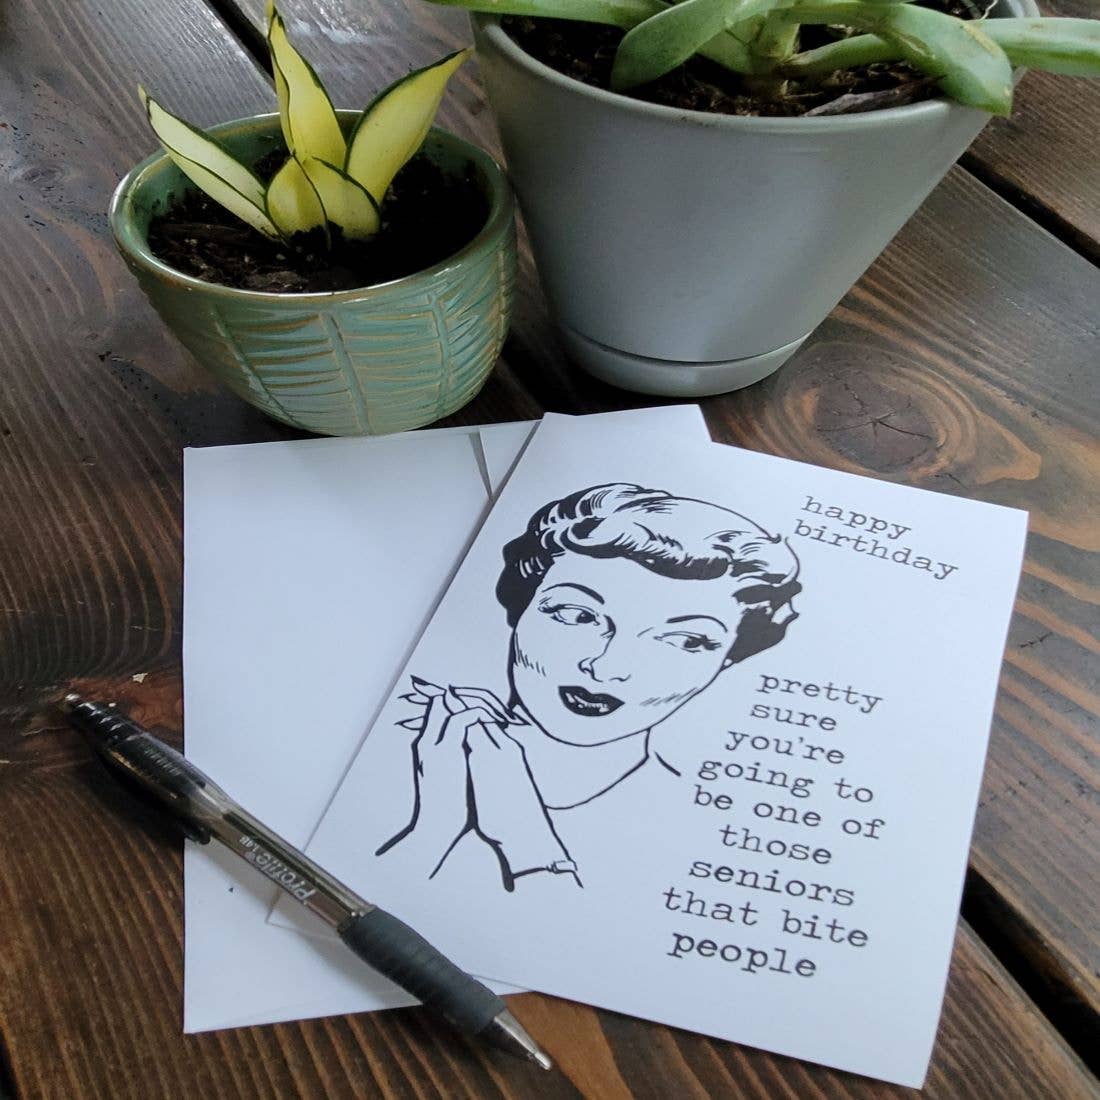 happy
birthday
pretty
sure
you're
going to
be one of
those
seniors
that bite
people
Profile